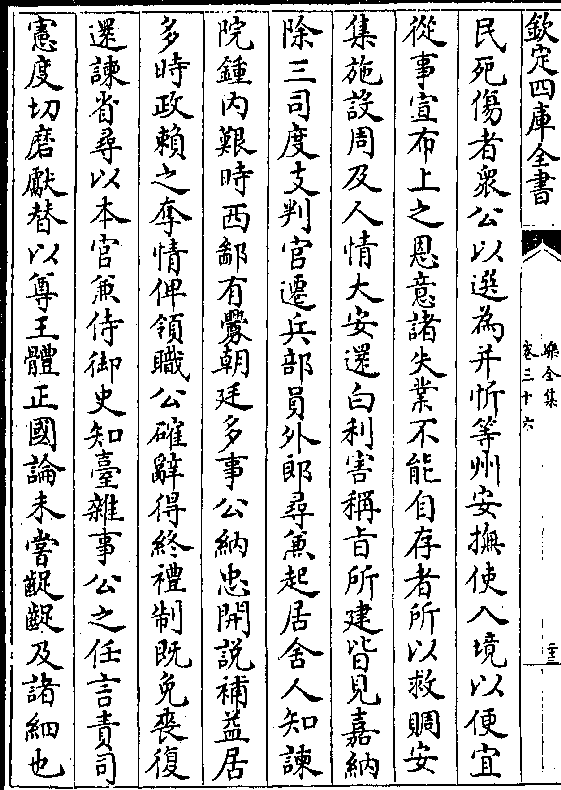 欽定四庫全書
樂全集
卷三十六
二十三
民死傷者衆公以選為并忻等州安撫使入境以便宜
從事宣布上之恩意諸失業不能自存者所以救賙安
集施設周及人情大安還白利害稱旨所建皆見嘉納
除三司度支判官遷兵部員外郎尋兼起居舍人知諫
院鍾内艱時西鄙有釁朝廷多事公納忠開說補益居
多時政賴之奪情俾領職公確辭得終禮制既免喪復
還諫省尋以本官兼侍御史知臺雜事公之任言責司
憲度切磨獻替以尊王體正國論未嘗齪齪及諸細也